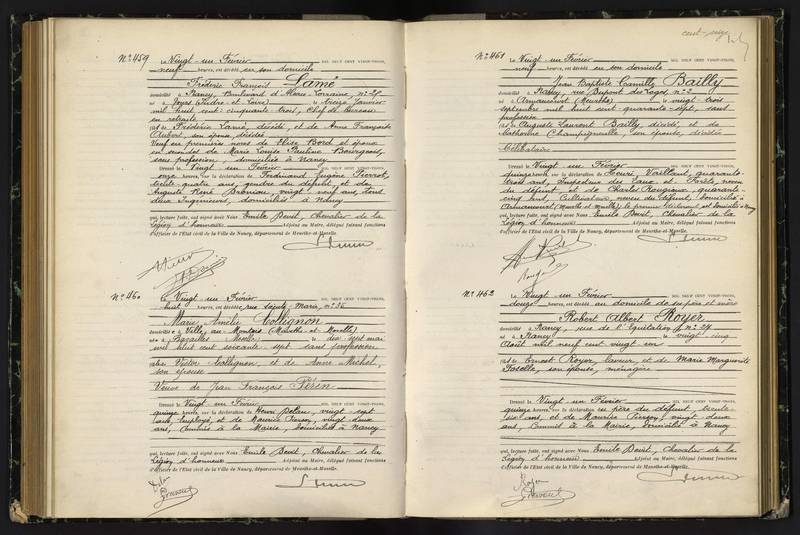 cent-seize
N° 459
Le Vingt-un Février mil neuf cent vingt-trois,
neuf heures, est décédé en son domicile
Frédéric François Lamé
domicilié à Nancy, Boulevard d'Alsace-Lorraine, n°
né à (Indre et Loire) le treize Janvier
mil huit cent cinquante-trois, Chef de bureau
en retraite
fils de Frédéric Lamé, décédé, et de Anne Françoise
Aubert, son épouse, décédée
Veuf en premières noces de Elise Bord et époux
en secondes de Marie Louise Pauline Bourgeois,
sans profession, domiciliée à Nancy
Dressé le Vingt-un Février mil neuf cent vingt-trois,
onze heures, sur la déclaration de Ferdinand Eugène Pierrot,
trente-quatre ans, gendre du défunt, et de
Auguste René vingt-neuf ans, tous
deux Ingénieurs, domiciliés à Nancy
qui, lecture faite, ont signé avec Nous Emile Devit, Chevalier de la
Légion d'honneur Adjoint au Maire, délégué faisant fonctions
d'officier de l'Etat civil de la Ville de Nancy, département de Meurthe-et-Moselle.
N° 460
Le Vingt-un Février mil neuf cent vingt-trois,
huit heures, est décédée rue Sainte-Marie, n° 36
Marie Amélie Collignon
domiciliée à Ville-au-Montois (Meurthe-et-Moselle)
née à Bazailles Moselle le dix-sept mai
mil huit cent soixante-sept, sans profession
fille de Victor Collignon, et de Anne Michel,
son épouse
Veuve de Jean François Périn
Dressé le Vingt-un Février mil neuf cent vingt-trois,
quinze heures, sur la déclaration de Henri vingt-sept
ans, Employé, et de Maurice Pierson, vingt-deux
ans, Commis à la Mairie, domiciliés à Nancy
qui, lecture faite, ont signé avec Nous Emile Devit, Chevalier de la
Légion d'honneur Adjoint au Maire, délégué faisant fonctions
d'officier de l'Etat civil de la Ville de Nancy, département de Meurthe-et-Moselle.
N° 461
Le Vingt-un Février mil neuf cent vingt-trois,
neuf heures, est décédé en son domicile
Jean Baptiste Camille Bailly
domicilié à Nancy, rue Dupont des Loges, n° 2
né à Armaucourt (Meurthe) le vingt-trois
septembre mil huit cent quarante-sept, sans
profession
fils de Auguste Laurent Bailly, décédé, et de
Catherine Champignelle, son épouse, décédée
Célibataire
Dressé le Vingt-un Février mil neuf cent vingt-trois,
quinze heures, sur la déclaration de Henri Vaillant, quarante-
trois ans, Inspecteur des Eaux et Forêts, neveu
du défunt, et de Charles Rougieux, quarante-
cinq ans, Cultivateur, neveu du défunt, domicilié à
Armaucourt (Meurthe et Moselle), le premier déclarant est domicilié à Nancy
qui, lecture faite, ont signé avec Nous Emile Devit, Chevalier de la
Légion d'honneur Adjoint au Maire, délégué faisant fonctions
d'officier de l'Etat civil de la Ville de Nancy, département de Meurthe-et-Moselle.
N° 462
Le Vingt-un Février mil neuf cent vingt-trois,
douze heures, est décédé au domicile de ses père et mère
Robert Albert Royer
domicilié à Nancy, rue de l'Equitation, n° 24
né à Nancy le vingt-cinq
Août mil neuf cent vingt-un
fils de Ernest Royer, et de Marie Marguerite
son épouse, ménagère
Dressé le Vingt-un Février mil neuf cent vingt-trois,
quinze heures, sur la déclaration du père du défunt, trente-
six ans, et de Maurice Pierson, vingt-deux
ans, Commis à la Mairie, domiciliés à Nancy
qui, lecture faite, ont signé avec Nous Emile Devit, Chevalier de la
Légion d'honneur Adjoint au Maire, délégué faisant fonctions
d'officier de l'Etat civil de la Ville de Nancy, département de Meurthe-et-Moselle.
Royer